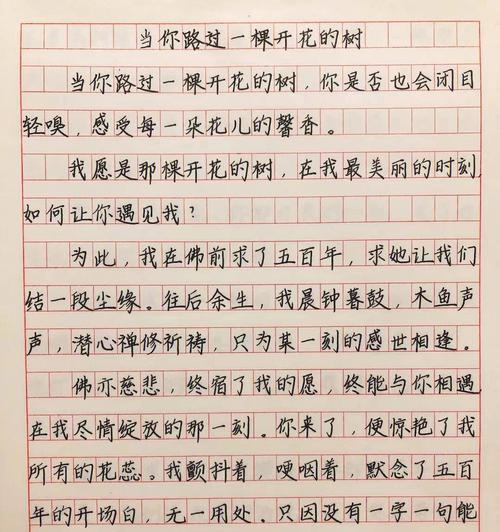 当你路过一棵开花的树
当你路过一棵开花的树，你是否也会闭目
轻嗅，感受每一朵花儿的馨香。
我愿是那棵开花的树，在我最美丽的时刻，
如何让你遇见我？
为此，我在佛前求了五百年，求她让我们
结一段尘缘。往后余生，我晨钟暮鼓，木鱼声
声，潜心禅修祈祷，只为某一刻的感世相逢。
佛亦慈悲，终宿了我的愿，终能与你相遇，
在我尽情绽放的那一刻。你来了，便惊艳了我
所有的花蕊。我颤抖着，哽咽着，默念了五百
年的开场白，无一用处。只因没有一字一句能